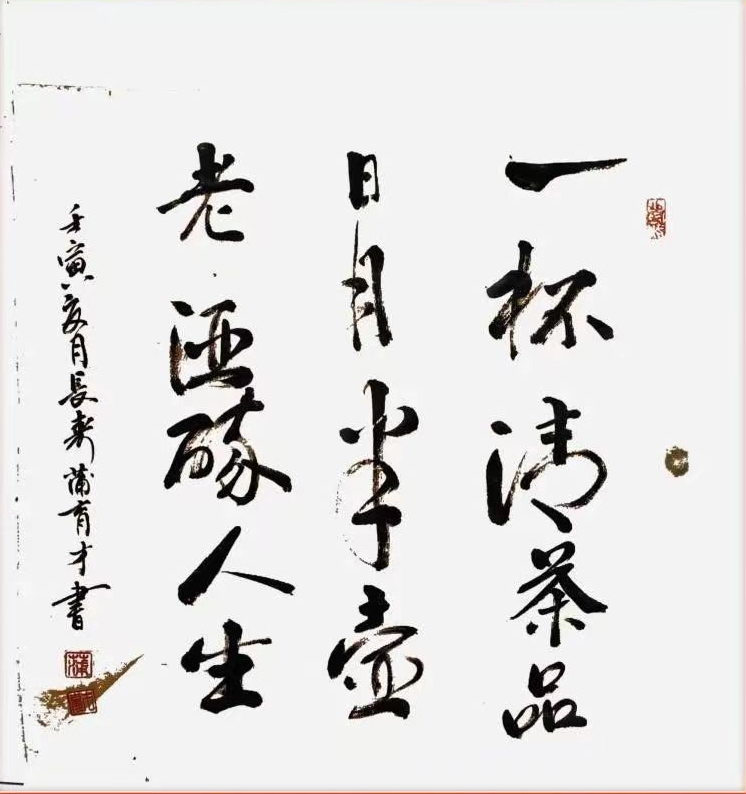 一杯清茶品
日月半壶
老酒醉人生
壬寅亥月長寿蒲育才書
蒲